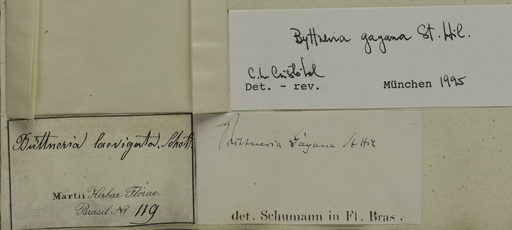 Byttneria gayana St. Hil.
C. L. Cristóbal
Det. - rev. München 1995
Büttneria laevigata. Schott.
Martii Herbar. Florae
Brasil. No 119
Büttneria Gayana St Hil
det. Schumann in Fl. Bras.